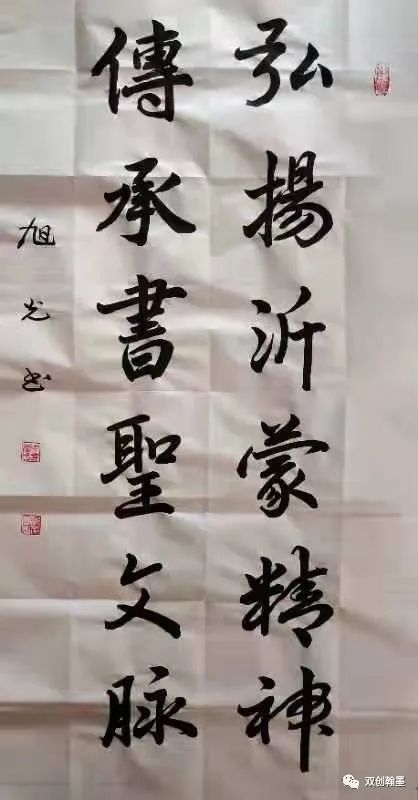 弘揚沂蒙精神
傳承書聖文脉
旭光书
双创翰墨